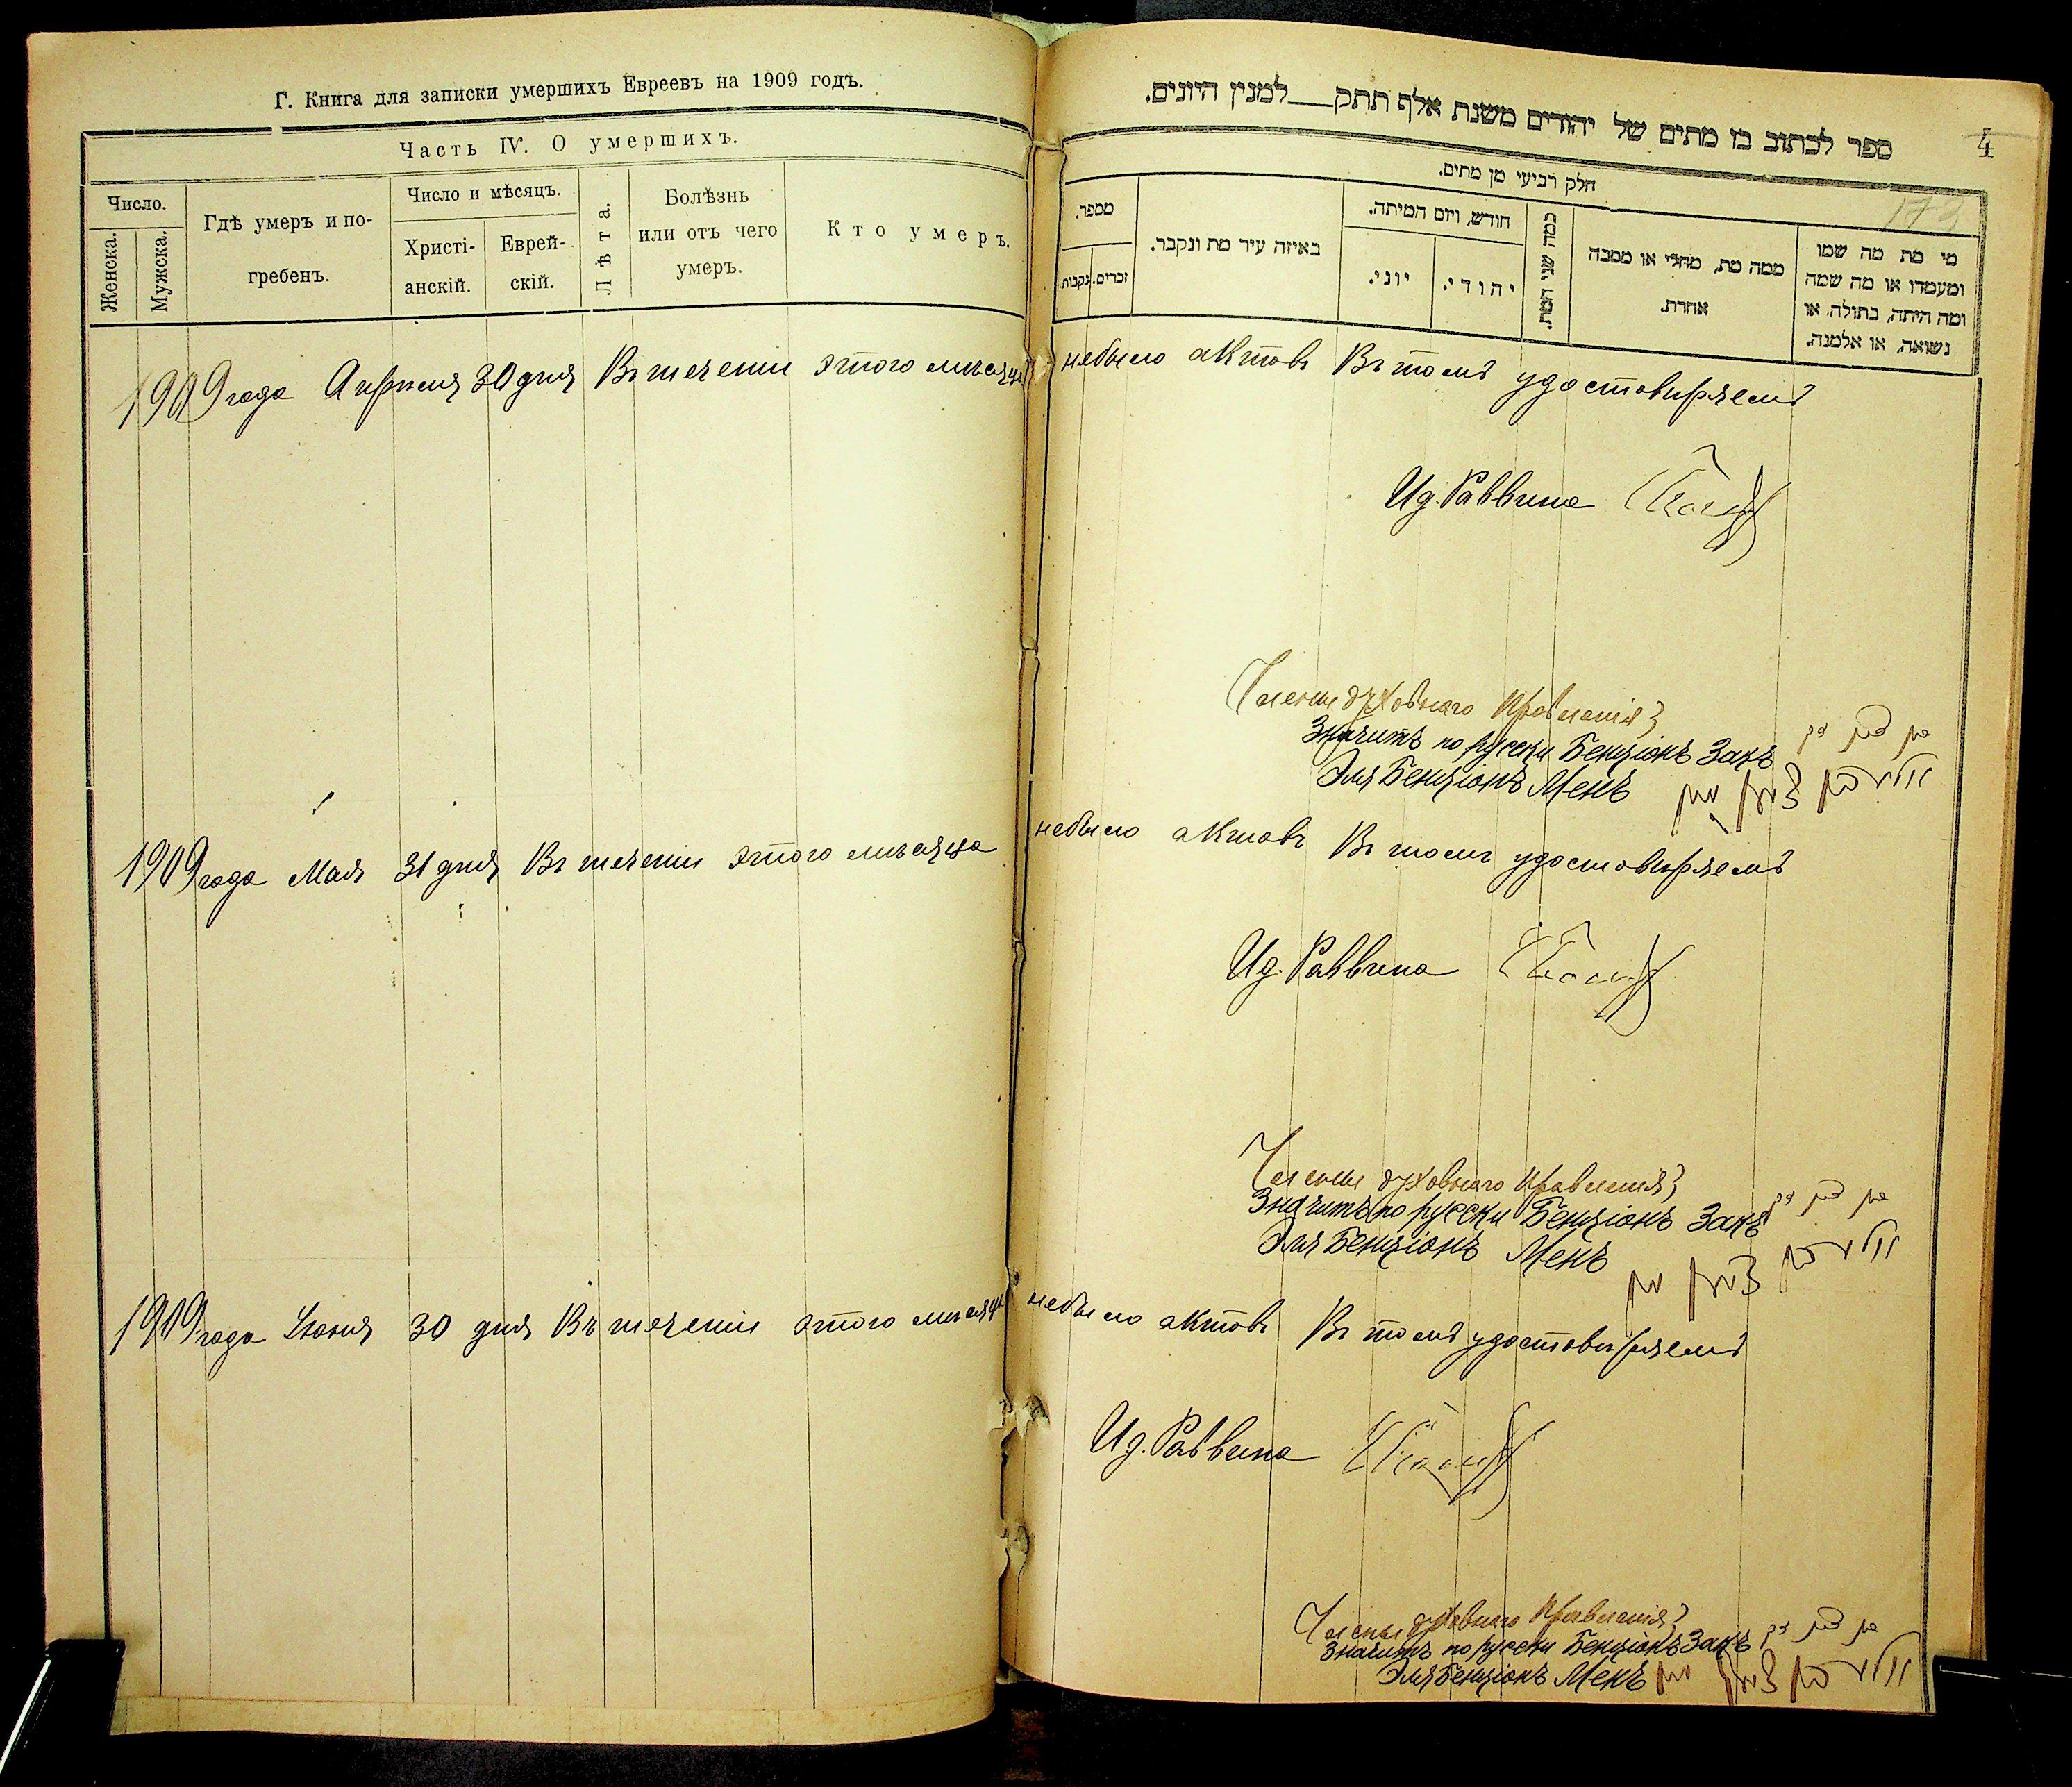 Г. Книга для записки умершихъ Евреевъ на 1909 годъ.
Часть IV. О умершихъ.
Число.
Женска.
Мужска.
Гдѣ умеръ и по-
гребенъ.
Число и мѣсяцъ.
Христі-
анскій.
Еврей-
скій.
Лѣта.
Болѣзнь
или отъ чего
умеръ.
Кто умеръ.
ספר לכתוב בו מתים של יהודים משנת אלף תתק___למנין היונים.
4
173
חלק רביעי מן מתים.
מספר.
זכרים.
נקבות.
באיזה עיר מת ונקבר.
חודש, ויום המיתה.
יוני.
יהודי.
כמה שני המת.
ממה מת, מחלי או מסבה
אחרת.
מי מת מה שמו
ומעמדו או מה שמה
ומה היתה, בתולה או
נשואה, או אלמנה.
1909 года Апрѣля 30 дня Въ теченіи этого мѣсяца небыло актовъ Въ томъ удостовѣряемъ
И д. Раввина
Члены духовнаго Правленія
Значитъ по русски Бенціонъ Закъ
Эля Бенціонъ Менъ
1909 года Мая 31 дня Въ теченіи этого мѣсяца небыло актовъ Въ томъ удостовѣряемъ
И д. Раввина
Члены духовнаго Правленія
Значитъ по русски Бенціонъ Закъ
Эля Бенціонъ Менъ
1909 года Іюня 30 дня Въ теченіи этого мѣсяца небыло актовъ Въ томъ удостовѣряемъ
И д. Раввина
Члены духовнаго Правленія
Значитъ по русски Бенціонъ Закъ
Эля Бенціонъ Менъ